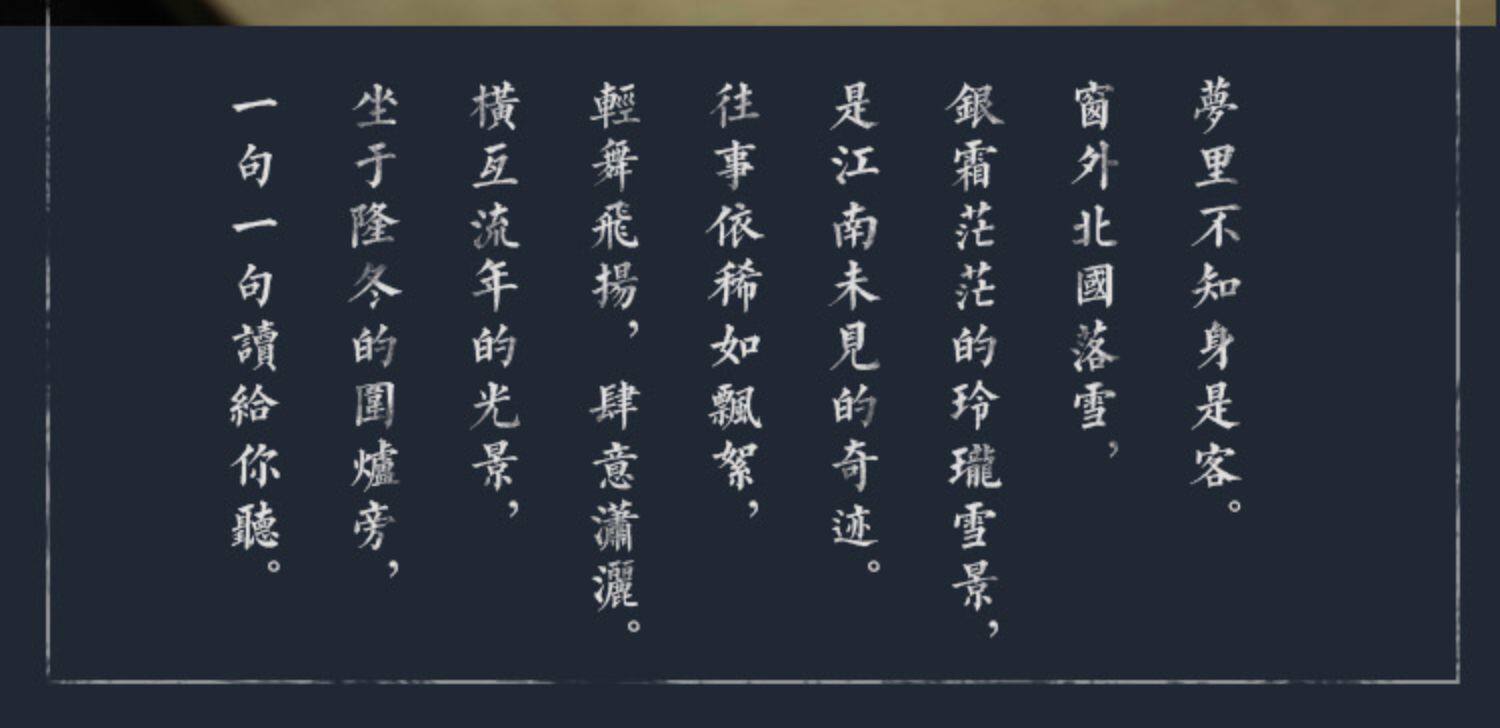 夢里不知身是客。
窗外北國落雪，
銀霜茫茫的玲瓏雪景，
是江南未見的奇迹。
往事依稀如飄絮，
輕舞飛揚，肆意瀟灑。
橫亙流年的光景，
坐于隆冬的圍爐旁，
一句一句讀給你聽。